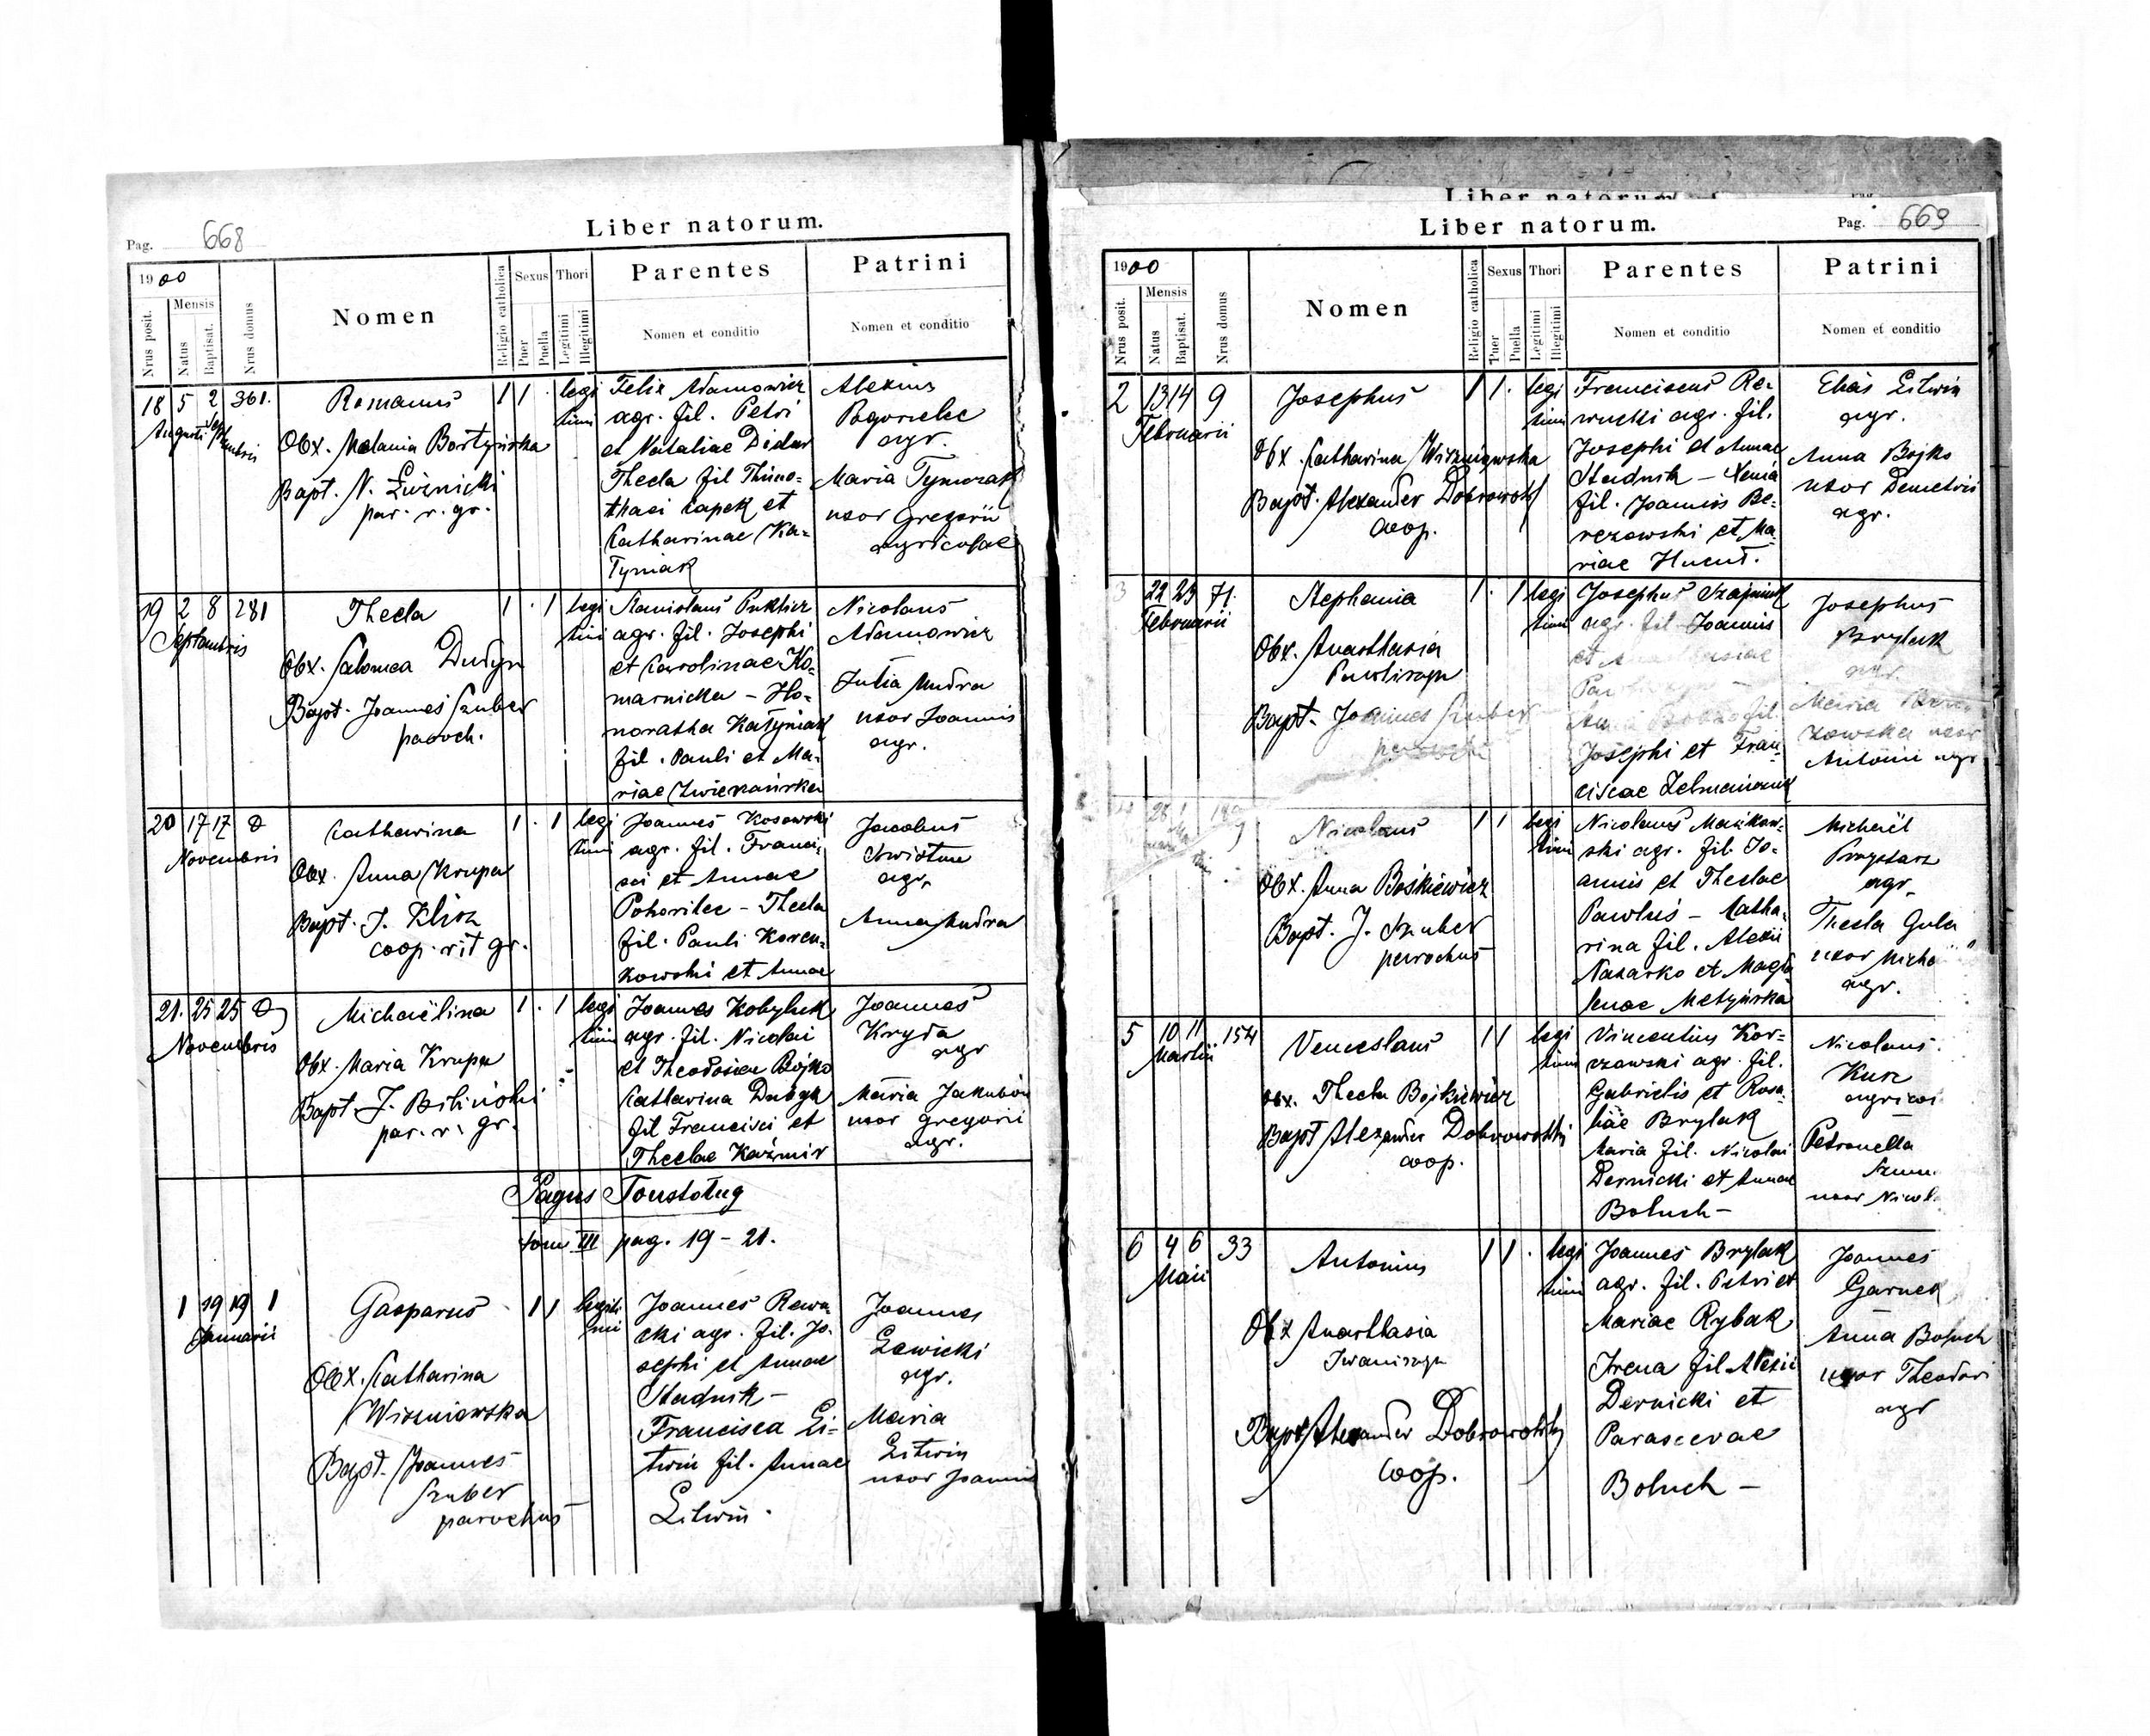 Liber natorum.
Pag. 668
1900
Mensis
Nrus posit.
Natus
Baptisat.
Nrus domus
Nomen
Religio catholica
Sexus
Puer
Puella
Thori
Legitimi
Illegitimi
Parentes
Nomen et conditio
Patrini
Nomen et conditio
18 5 2 361.
Augusti Septembris
Romanus
Obx. Melania Bortyńska
Bapt. N. Liźnicki
par. r. gr.
1 1 .
legi
timi
Felix Adamowicz
agr. fil. Petri
et Nataliae Didur
Thecla fil Thimo=
thaei Łapek et
Catharinae Ka=
Tyniak
Alexius
Pogorielec
agr.
Maria Tymczak
uxor Gregorii
agricolae
19 2 8 281
Septembris
Thecla
Obx. Salomea Dudyn
Bapt. Joannes Szuber
paroch.
1 . 1
legi
timi
Stanislaus Puklicz
agr. fil. Josephi
et Carolinae Ko=
marnicka - Ho=
noratha Katyniak
fil. Pauli et Ma=
riae Zwierzańska
Nicolaus
Adamowicz
Julia Mudra
uxor Joannis
agr.
20 17 17
Novembris
Catharina
Obx. Anna Krupa
Bapt. J.
coop. rit gr.
1 . 1
legi
timi
Joannes Kosowski
agr. fil. Franci=
sci et Annae
Pohorilec - Thecla
fil. Pauli Koren=
kowski et Annae
Jacobus
agr.
Anna Mudra
21. 25 25
Novembris
Michaëlina
Obx. Maria Krupa
Bapt. J. Biliński
par. r. gr.
1 . 1
legi
timi
Joannes Kobyluk
agr. fil. Nicolai
et Theodosiae Bojko
Catharina Dudyk
fil Francisci et
Theclae Kaźmir
Joannes
Kryda
agr
Maria Jakubów
uxor Gregorii
agr.
Pagus Toustoług
tom III pag. 19 - 21.
1 19 19 1
Januarii
Gasparus
Obx. Catharina
Wiszniewska
Bapt. Joannes
Szuber
parochus
1 1
legiti
mi
Joannes Rewu
cki agr. fil. Jo=
sephi et Annae
Stadnik -
Francisca Li=
twin fil. Annae
Litwin.
Joannes
Ławicki
agr.
Maria
Litwin
uxor Joannis
Liber natorum.
Liber natorum.
Pag. 669
1900
Mensis
Nrus posit.
Natus
Baptisat.
Nrus domus
Nomen
Religio catholica
Sexus
Puer
Puella
Thori
Legitimi
Illegitimi
Parentes
Nomen et conditio
Patrini
Nomen et conditio
2 13 14 9
Februarii
Josephus
Obx. Catharina Wiszniewska
Bapt. Alexander Dobrowolski
coop.
1 1 .
legi
timi
Franciscus Re=
wucki agr. fil.
Josephi et Annae
Stadnik - Xenia
fil. Joannis Be=
rezowski et Ma
riae Hucut.
Elias Litwin
agr.
Anna Bojko
uxor Demetrii
agr.
3 22 23 71.
Februarii
Stephania
Obx. Anasthasia
Pawliszyn
Bapt. Joannes Szuber
parochus
1 . 1
legi
timi
Josephus Szajniuk
agr. fil. Joannis
et Anasthasiae
fil.
Josephi et Fran
ciscae
Josephus
Brylak
agr.
Maria
uxor
Antonii agr
28 1
Nicolaus
Obx. Anna Boskiewicz
Bapt. J. Szuber
parochus
1 1
legi
timi
Nicolaus Mazikow=
ski agr. fil. Jo=
annis et Theclae
Pawlus - Catha=
rina fil. Alexii
Nazarko et Magda
lenae Metyńska
Michaël
Przystarz
agr.
Thecla Gula
uxor Micha
agr.
5 10 11 154
Martii
Venceslaus
obx. Thecla Bojkiewicz
Bapt Alexander Dobrowolski
coop.
1 1
legi
timi
Vincentius Kor=
czowski agr. fil.
Gabrielis et Rosa=
liae Brylak
Maria fil. Nicolai
Dernicki et Annae
Boluch -
Nicolaus
Kurz
agricol
Petronella
uxor Nicol.
6 4 6 33
Maii
Antonius
Obx Anasthasia
Iwaniszyn
Bapt Alexander Dobrowolski
coop.
1 1 .
legi
timi
Joannes Brylak
agr. fil. Petri et
Mariae Rybak
Irena fil Alexii
Dernicki et
Parascevae
Boluch -
Joannes
Garnek
Anna Boluch
uxor Theodori
agr